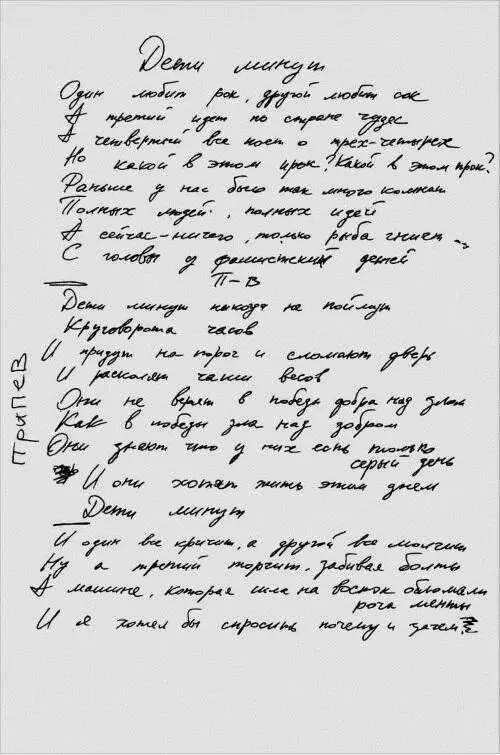 Дети минут
Один любит рок, другой любит сок
А третий идет по стране чудес
А четвертый все поет о трех-четырех
Но какой в этом прок? Какой в этом прок?
Раньше у нас было так много комнат
Полных людей, полных идей
А сейчас-ничего, только рыба гниет...
С головы у фашистский детей
П-В
Дети минут никогда не поймут
Круговорота часов
И придут на порог и сломают дверь
И расколят чаши весов
Они не верят в победы добра над злом
Как в победы зла над добром
Они знают что у них есть только
серый день
И они хотят жить этим днем
Дети минут
ПРИПЕВ
И один все кричит, а другой все молчит
Ну а третий торчит, забивая болты
А машине, которая шла на восток обломали
рога менты
И я хотел бы спросить почему и зачем?